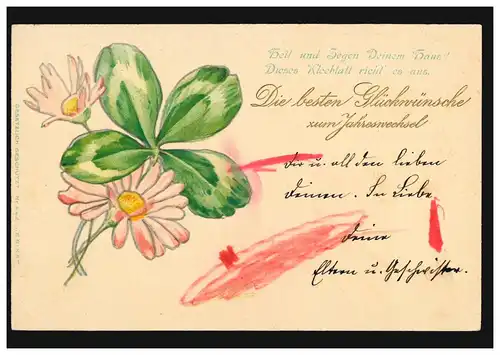 Heil und Segen Deinem Haus!
Dieses Kleeblatt richt es aus.
Die besten Glückwünsche
zum Jahreswechsel
Dir u. all den lieben
Deinen. In Liebe
Deine
Eltern u. Geschwister.
GESETZLICH GESCHÜTZT